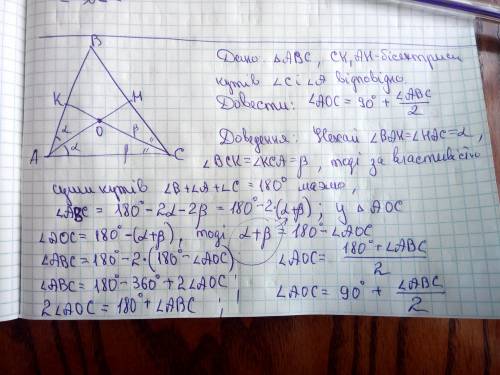 B
K
H
O
α
β
α
β
A
C
Дано: △ABC, CK, AH-бісектриси
кутів ∠C і ∠A відповідно.
Довести: ∠AOC = 90° + ∠ABC/2
Доведення: Нехай ∠BAH=∠HAC=α,
∠BCK=∠KCA=β, тоді за властивістю
суми кутів ∠B+∠A+∠C=180° маємо,
∠ABC = 180°-2α-2β = 180°-2·(α+β); у △AOC
∠AOC=180°-(α+β), тоді α+β=180°-∠AOC
∠ABC=180°-2·(180°-∠AOC)
∠ABC=180°-360°+2∠AOC;
2∠AOC=180°+∠ABC;
∠AOC= 180°+∠ABC/2
∠AOC= 90° + ∠ABC/2